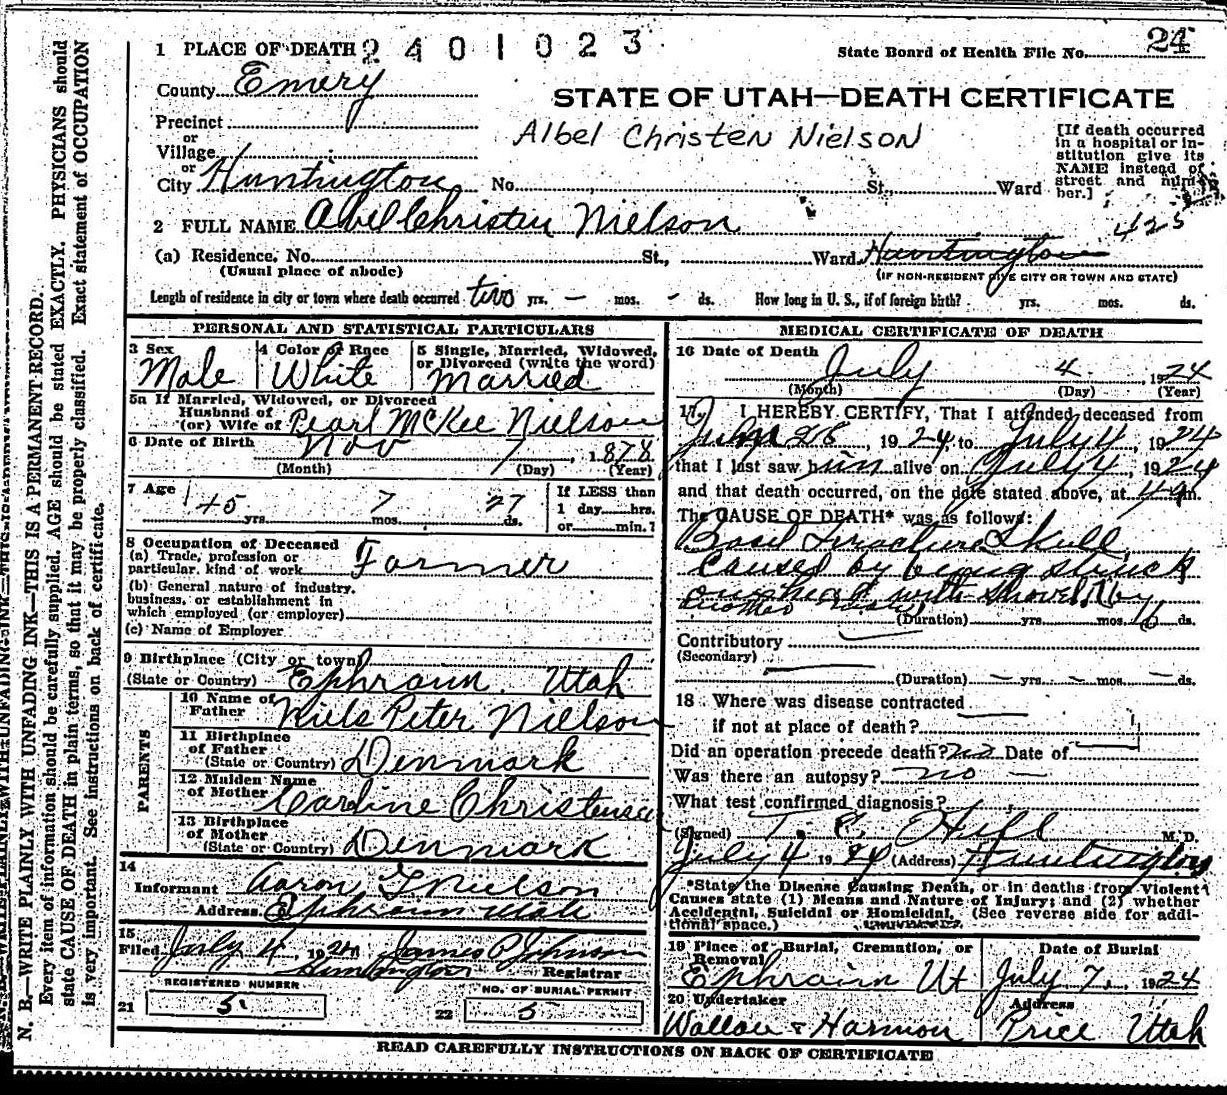 1 PLACE OF DEATH 2401023
State Board of Health File No. 24
County Emery
STATE OF UTAH—DEATH CERTIFICATE
Precinct
or
Village
or
City Huntington No. St., Ward
Albel Christen Nielson
[If death occurred
in a hospital or in-
stitution give its
NAME instead of
street and num-
ber.]
425
2 FULL NAME Abel Christen Nielson
(a) Residence, No. St., Ward Huntington
(Usual place of abode)
(IF NON-RESIDENT GIVE CITY OR TOWN AND STATE)
Length of residence in city or town where death occurred two yrs. – mos. – ds. How long in U. S., if of foreign birth? yrs. mos. ds.
PERSONAL AND STATISTICAL PARTICULARS
3 Sex
Male
4 Color or Race
White
5 Single, Married, Widowed,
or Divorced (write the word)
Married
5a If Married, Widowed, or Divorced
Husband of
(or) Wife of Pearl McKee Nielson
6 Date of Birth Nov 7, 1878
(Month) (Day) (Year)
7 Age
45 yrs. 7 mos. 27 ds.
If LESS than
1 day hrs.
or min.?
8 Occupation of Deceased
(a) Trade, profession or
particular kind of work Farmer
(b) General nature of industry,
business, or establishment in
which employed (or employer)
(c) Name of Employer
9 Birthplace (City or town)
(State or Country) Ephraim Utah
PARENTS
10 Name of
Father Niels Peter Nielson
11 Birthplace
of Father
(State or Country) Denmark
12 Maiden Name
of Mother Caroline Christensen
13 Birthplace
of Mother
(State or Country) Denmark
14
Informant Aaron Nielson
Address Ephraim Utah
15
Filed July 4, 1924 James P Johnson
Huntington Registrar
REGISTERED NUMBER
21 5
NO. OF BURIAL PERMIT
22 5
MEDICAL CERTIFICATE OF DEATH
16 Date of Death
July 4, 1924
(Month) (Day) (Year)
17. I HEREBY CERTIFY, That I attended deceased from
28, 1924, to July 4, 1924
that I last saw him alive on July 4, 1924
and that death occurred, on the date stated above, at 4 a m.
The CAUSE OF DEATH* was as follows:
Basel Skull
caused by being struck
with shovel by
(Duration) yrs. mos. 6 ds.
Contributory
(Secondary)
(Duration) – yrs – mos. – ds.
18 Where was disease contracted
if not at place of death?
Did an operation precede death? no Date of
Was there an autopsy? no –
What test confirmed diagnosis?
(Signed) T. C. Hill M.D.
July 4 1924 (Address) Huntington
*State the Disease Causing Death, or in deaths from Violent
Causes state (1) Means and Nature of Injury; and (2) whether
Accidental, Suicidal or Homicidal. (See reverse side for addi-
tional space.)
19 Place of Burial, Cremation, or
Removal
Ephraim Ut
Date of Burial
July 7, 1924
20 Undertaker
Wallace & Harmon
Address
Price Utah
READ CAREFULLY INSTRUCTIONS ON BACK OF CERTIFICATE
N. B.—WRITE PLAINLY WITH UNFADING INK—THIS IS A PERMANENT RECORD.
Every item of information should be carefully supplied. AGE should be stated EXACTLY. PHYSICIANS should
state CAUSE OF DEATH in plain terms, so that it may be properly classified. Exact statement of OCCUPATION
is very important. See instructions on back of certificate.